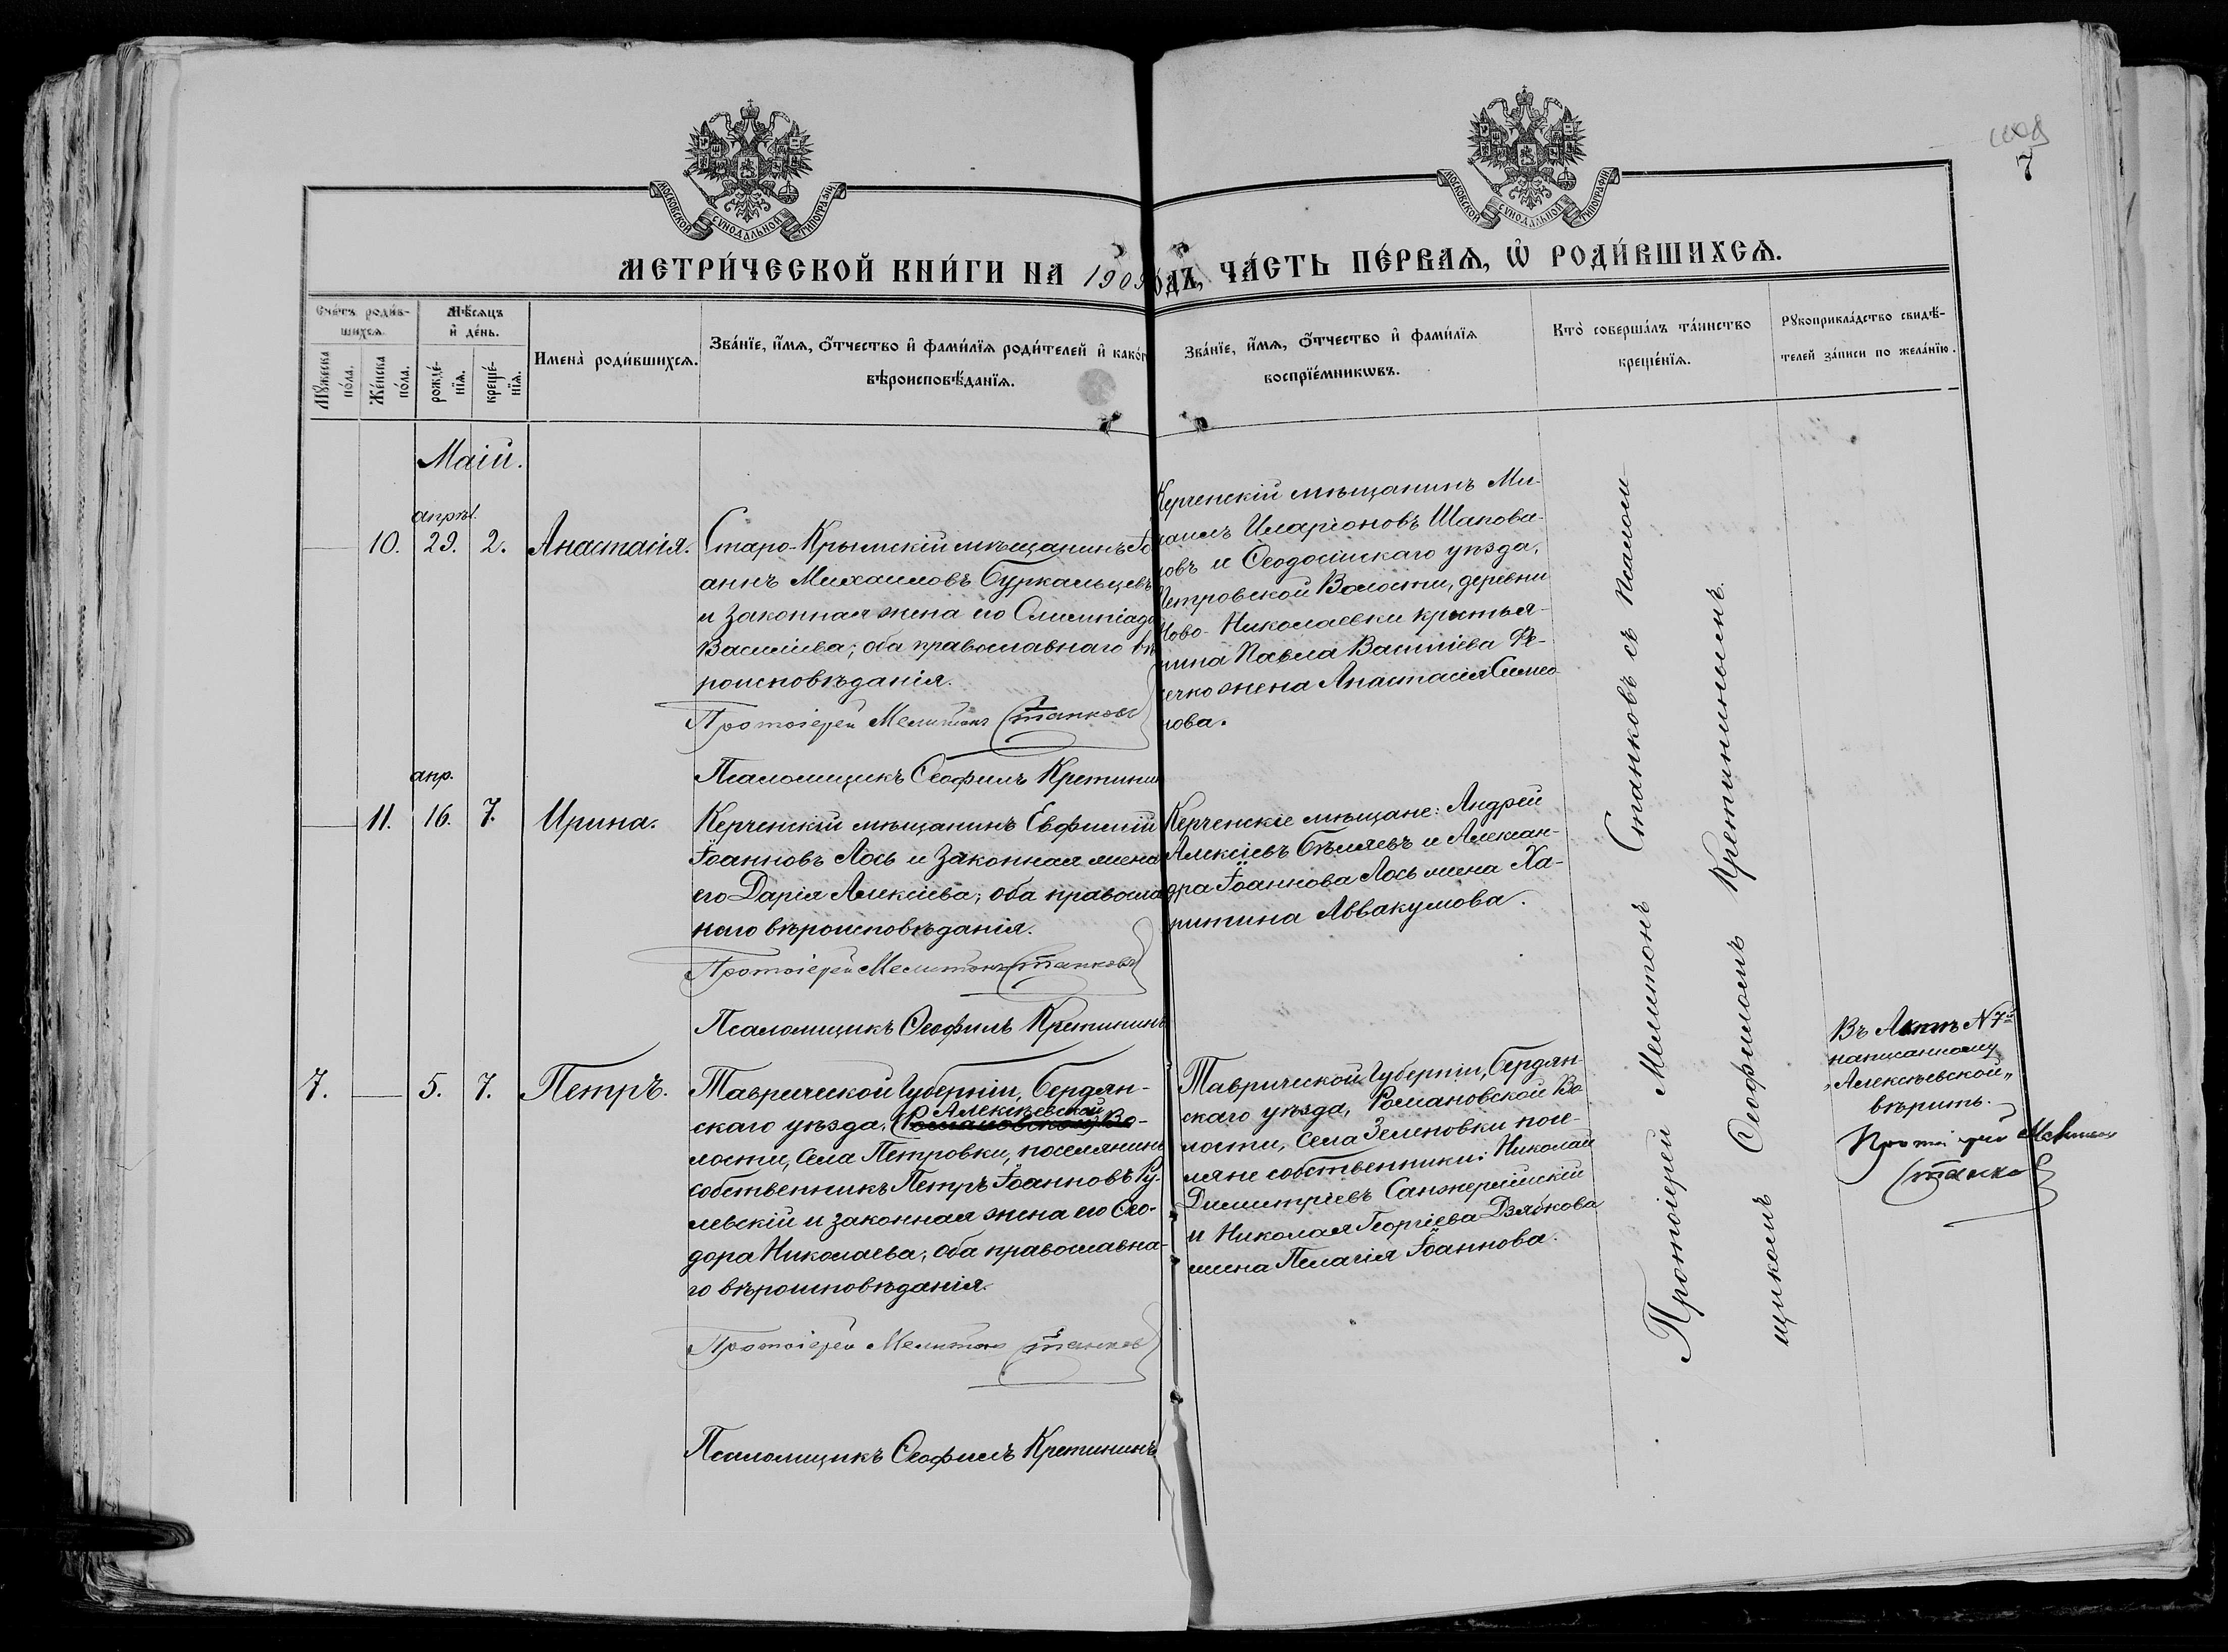 7
МОСКОВСКОЙ СѴНОДАЛЬНОЙ ТИПОГРАФІИ
МОСКОВСКОЙ СѴНОДАЛЬНОЙ ТИПОГРАФІИ
МЕТРИ́ЧЕСКОЙ КНИ́ГИ НА 1909 ГОДЪ, ЧА́СТЬ ПЕ́РВАѦ, Ѡ҆ РОДИ́ВШИХСѦ.
Сче́тъ роди́в-
шихсѧ.
Мꙋ́жеска
по́ла.
Же́нска
по́ла.
Мѣ́сѧцъ
и҆ де́нь.
рожде́-
нїѧ.
креще́-
нїѧ.
Имена̀ роди́вшихсѧ.
Зва́нїе, и҆́мѧ, ѻ҆́тчество и҆ фами́лїѧ роди́телей и҆ како́гѡ
вѣроисповѣ́данїѧ.
Зва́нїе, и҆́мѧ, ѻ҆́тчество и҆ фами́лїѧ
воспрїе́мникѡвъ.
Кто̀ соверша́лъ та́инство
креще́нїѧ.
Рꙋкоприкла́дство свидѣ́-
телей за́писи по жела́нїю.
Маій.
апрѣл.
10. 29. 2. Анастасія.
Старо-Крымскій мѣщанинъ Іо
аннъ Михаиловъ Буркальцевъ
и законная жена его Олимпіада
Василіева; оба православнаго вѣ
роисповѣданія.
Протоіерей Мелитонъ Станковъ
Псаломщикъ Ѳеофилъ Кретининъ
Керченскій мѣщанинъ Ми-
хаилъ Иларіоновъ Шапова-
ловъ и Ѳеодосійскаго уѣзда,
Петровской Волости, деревни
Ново-Николаевки крестья-
нина Павла Василіева Фе-
жена Анастасія Симео
нова.
апр.
11. 16. 7. Ирина.
Керченскій мѣщанинъ Евфимій
Іоанновъ Лось и законная жена
его Дарія Алексіева; оба православ
наго вѣроисповѣданія.
Протоіерей Мелитонъ Станковъ
Псаломщикъ Ѳеофилъ Кретининъ
Керченскіе мѣщане: Андрей
Алексіевъ Бѣляевъ и Алексан-
дра Іоаннова Лось жена Ха-
ритина Аввакумова.
7. 5. 7. Петръ.
Таврической Губерніи, Бердян-
скаго уѣзда, Романовской Во-
Алексѣевской
лости, села Петровки, поселянинъ
собственникъ Петръ Іоанновъ Ру-
левскій и законная жена его Ѳео-
дора Николаева; оба православна-
го вѣроисповѣданія.
Протоіерей Мелитонъ Станковъ
Псаломщикъ Ѳеофилъ Кретининъ
Таврической Губерніи, Бердян-
скаго уѣзда, Романовской Во-
лости, села Зеленовки посе-
ляне собственники: Николай
Димитріевъ Санжерійскій
и Николая Георгіева Дзябкова
жена Пелагія Іоаннова.
Протоіерей Мелитонъ Станковъ съ Псалом-
щикомъ Ѳеофиломъ Кретининымъ.
Въ Актѣ N 7й
написанному
„Алексѣевской„
вѣрить.
Протоіерей Мелитонъ
Станковъ